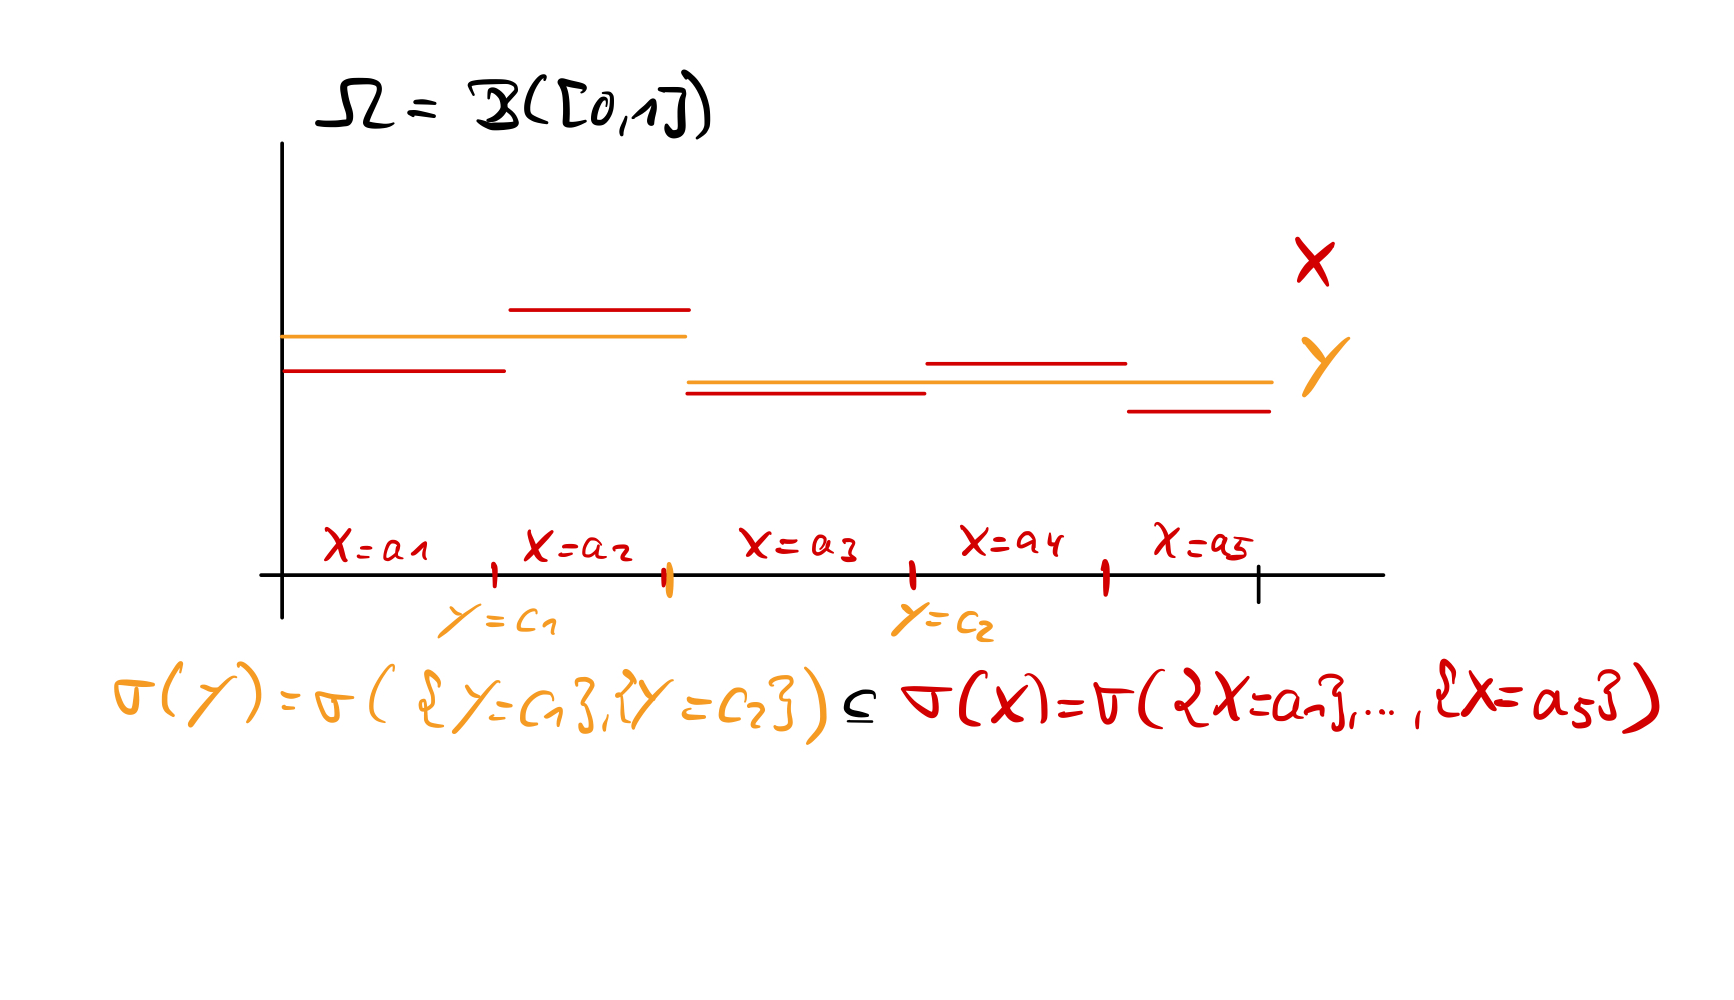 Ω = B([0,1])
X
Y
X=a1 X=a2 X=a3 X=a4 X=a5
Y=c1 Y=c2
σ(Y)=σ({Y=c1},{Y=c2}) ⊆ σ(X)=σ({X=a1},...,{X=a5})